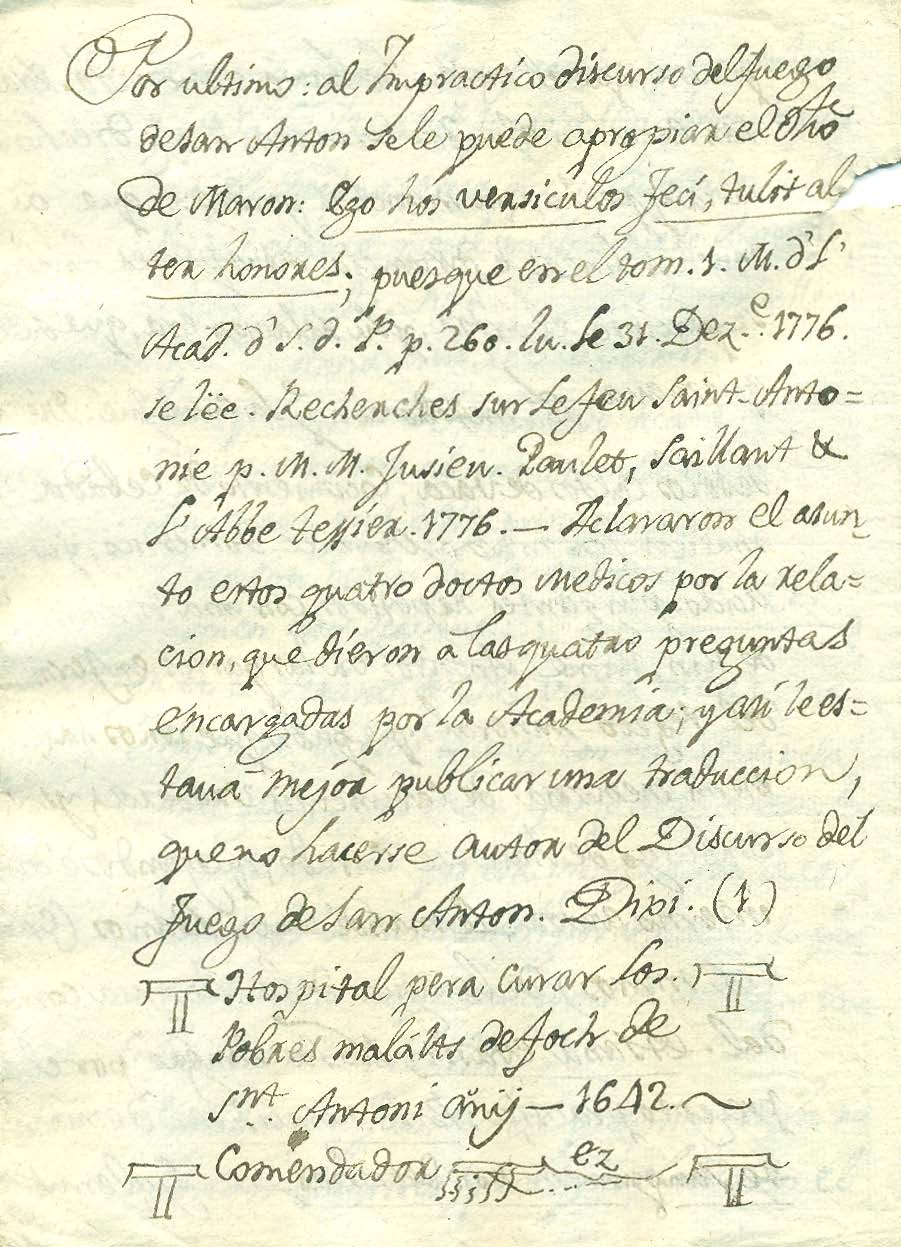 Por ultimo: al Impractico discurso del fuego
de San Anton se le puede apropiar el dho
de Maron: Ego hos versiculos feci, tulit al
ter honores; puesque en el tom. 1. M. d' L'
Acad. d' S. d. P. p. 260. lu. le 31. Dez.e 1776.
se lëe. Recherches sur le feu Saint-Anto=
nie p. M. M. Jusieu. Paulet, Saillant &
L'Abbe Tessier. 1776. — Aclararon el asun
to estos quatro doctos medicos por la rela=
cion, que dieron a las quatro preguntas
encargadas por la Academia; y asi le es=
tava mejor publicar una traduccion,
que no hacerse autor del Discurso del
fuego de San Anton. Dixi. (1)
Hospital pera curar los.
Pobres malálts de foch de
Snt. Antoni añy — 1642.
Comendador
ez